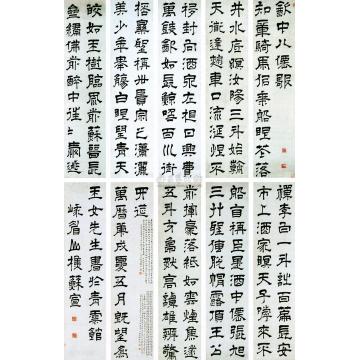 飲中八僊歌
知章騎馬佀乘船眼芲落
井水底眠汝陽三斗始朝
天道逢麴車口流涎恨不
移封向酒泉左相日興費
萬錢飲如長鯨吸百川銜
桮樂聖稱世賢宗之瀟灑
美少年舉觴白眼望青天
皎如玉樹臨風前蘇晉長
齋繡佛前醉中往往愛逃
禪李白一斗詩百篇長安
市上酒家眠天子呼來不
船自稱臣是酒中僊張旭
三桮草聖傳脫帽露頂王公
前揮豪落紙如雲煙焦遂
五斗方卓然高談雄辯驚
四筵
萬曆庚戌夏五月既望為
先生書於青霞館
山樵蘇宣